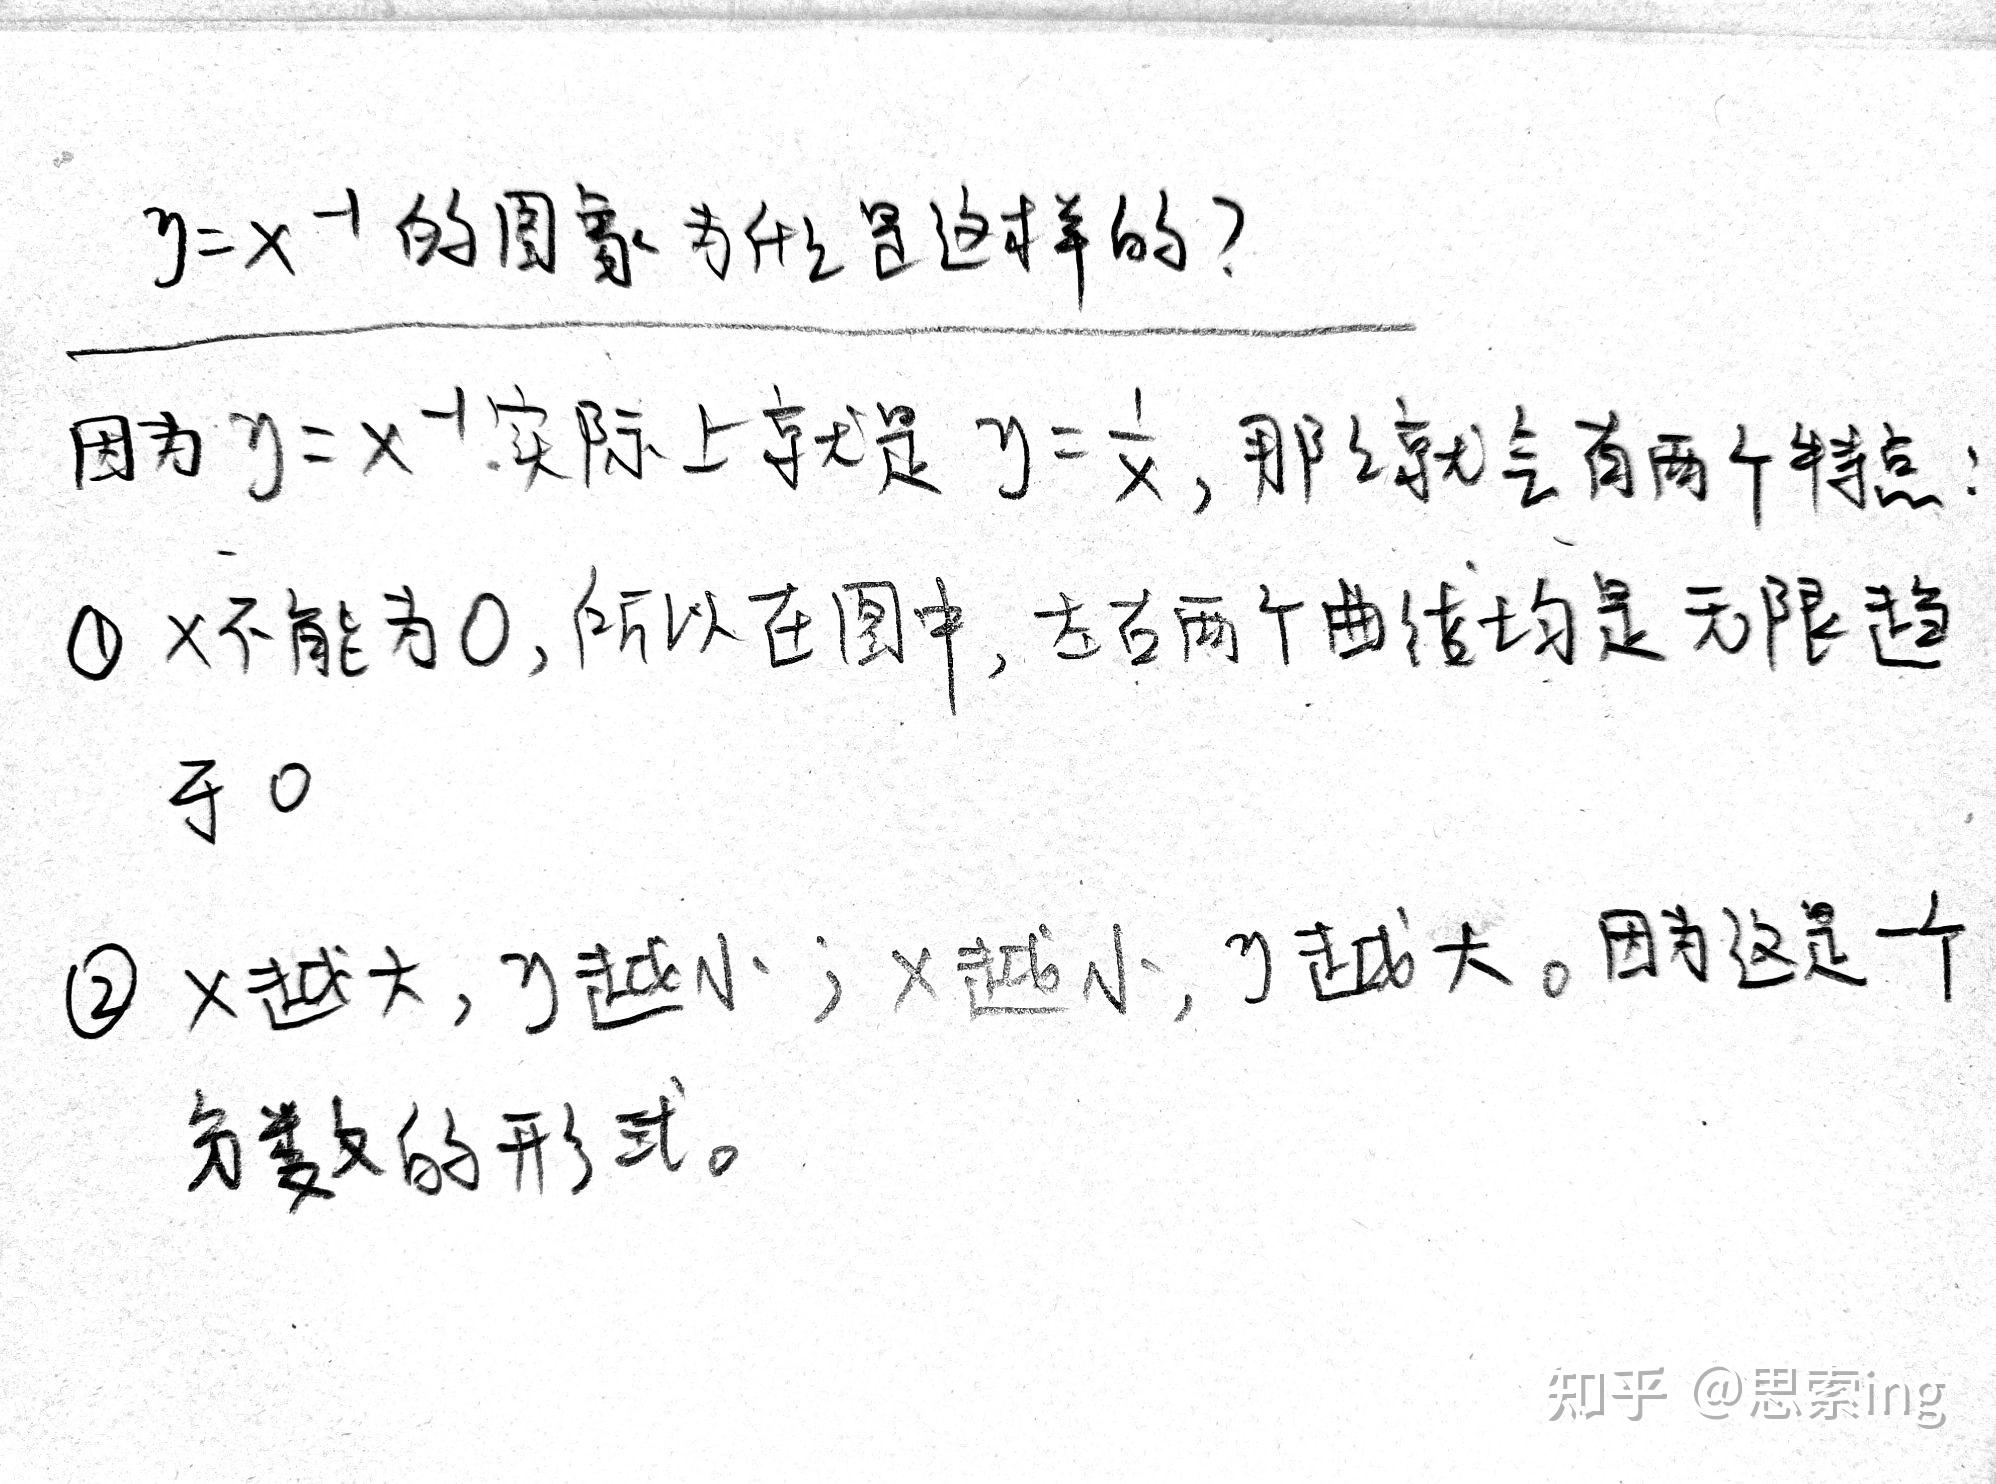 y=x⁻¹的图象为什么是这样的?
因为y=x⁻¹实际上就是y=1/x,那么就会有两个特点:
① x不能为0,所以在图中,左右两个曲线均是无限趋
于0
② x越大,y越小;x越小,y越大。因为这是一个
分数的形式。
知乎 @思索ing